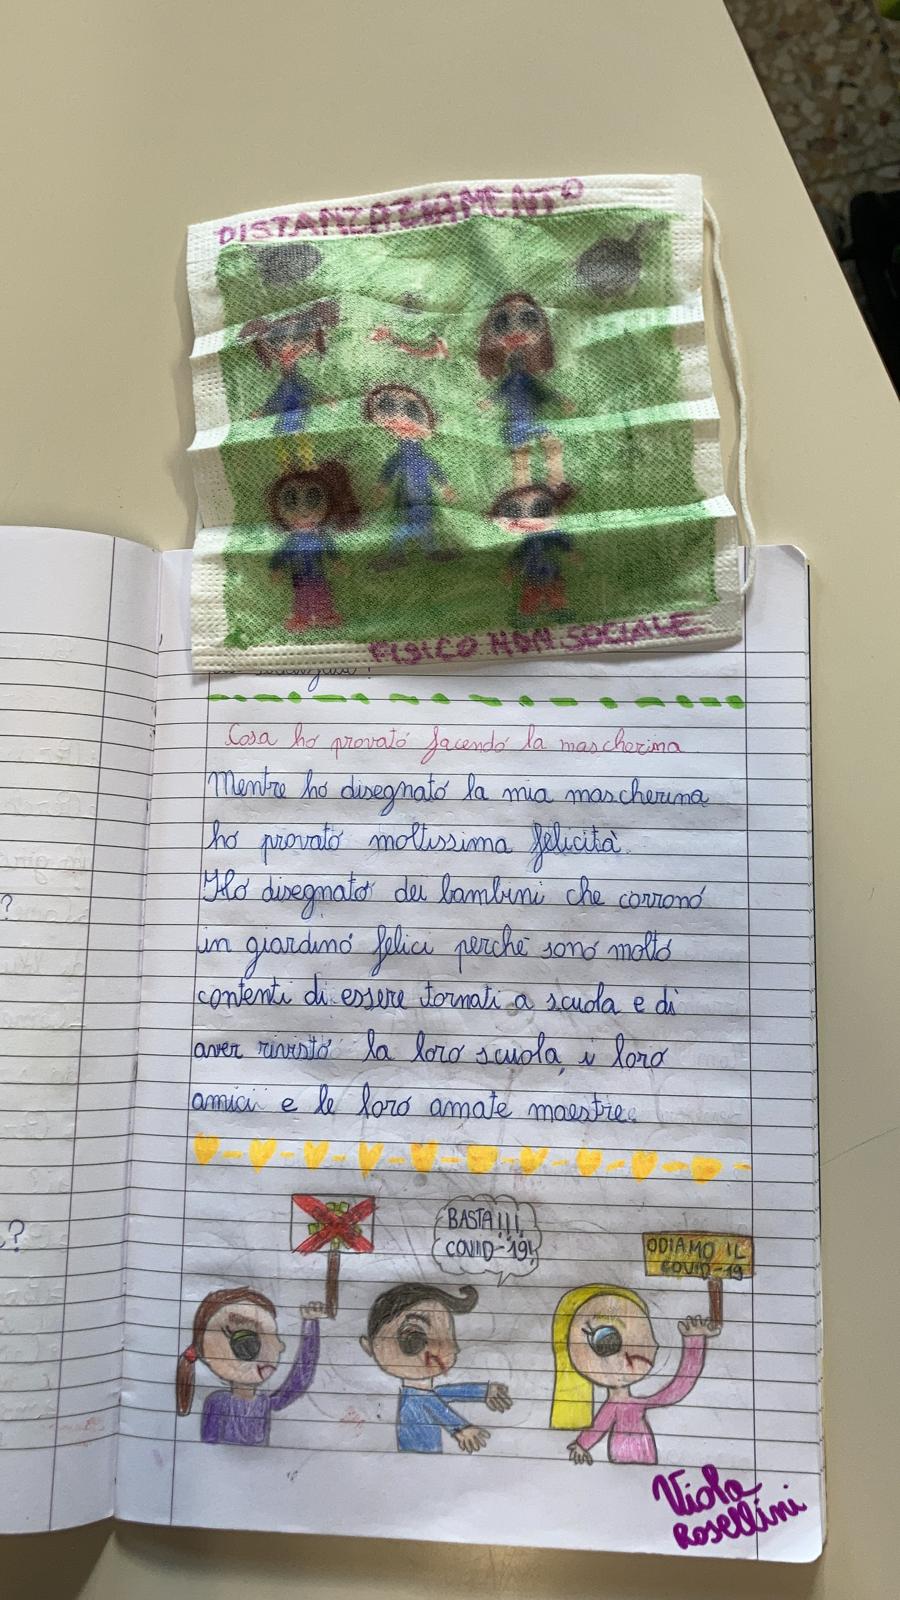 DISTANZAZIAMENTO
FISICO NON SOCIALE
Cosa ho provato facendo la mascherina
Mentre ho disegnato la mia mascherina
ho provato moltissima felicità.
Ho disegnato dei bambini che corrono
in giardino felici perchè sono molto
contenti di essere tornati a scuola e di
aver rivisto la loro scuola, i loro
amici e le loro amate maestre.
BASTA!!!
COVID-19!
ODIAMO IL
COVID-19
?
?
Viola
Rosellini